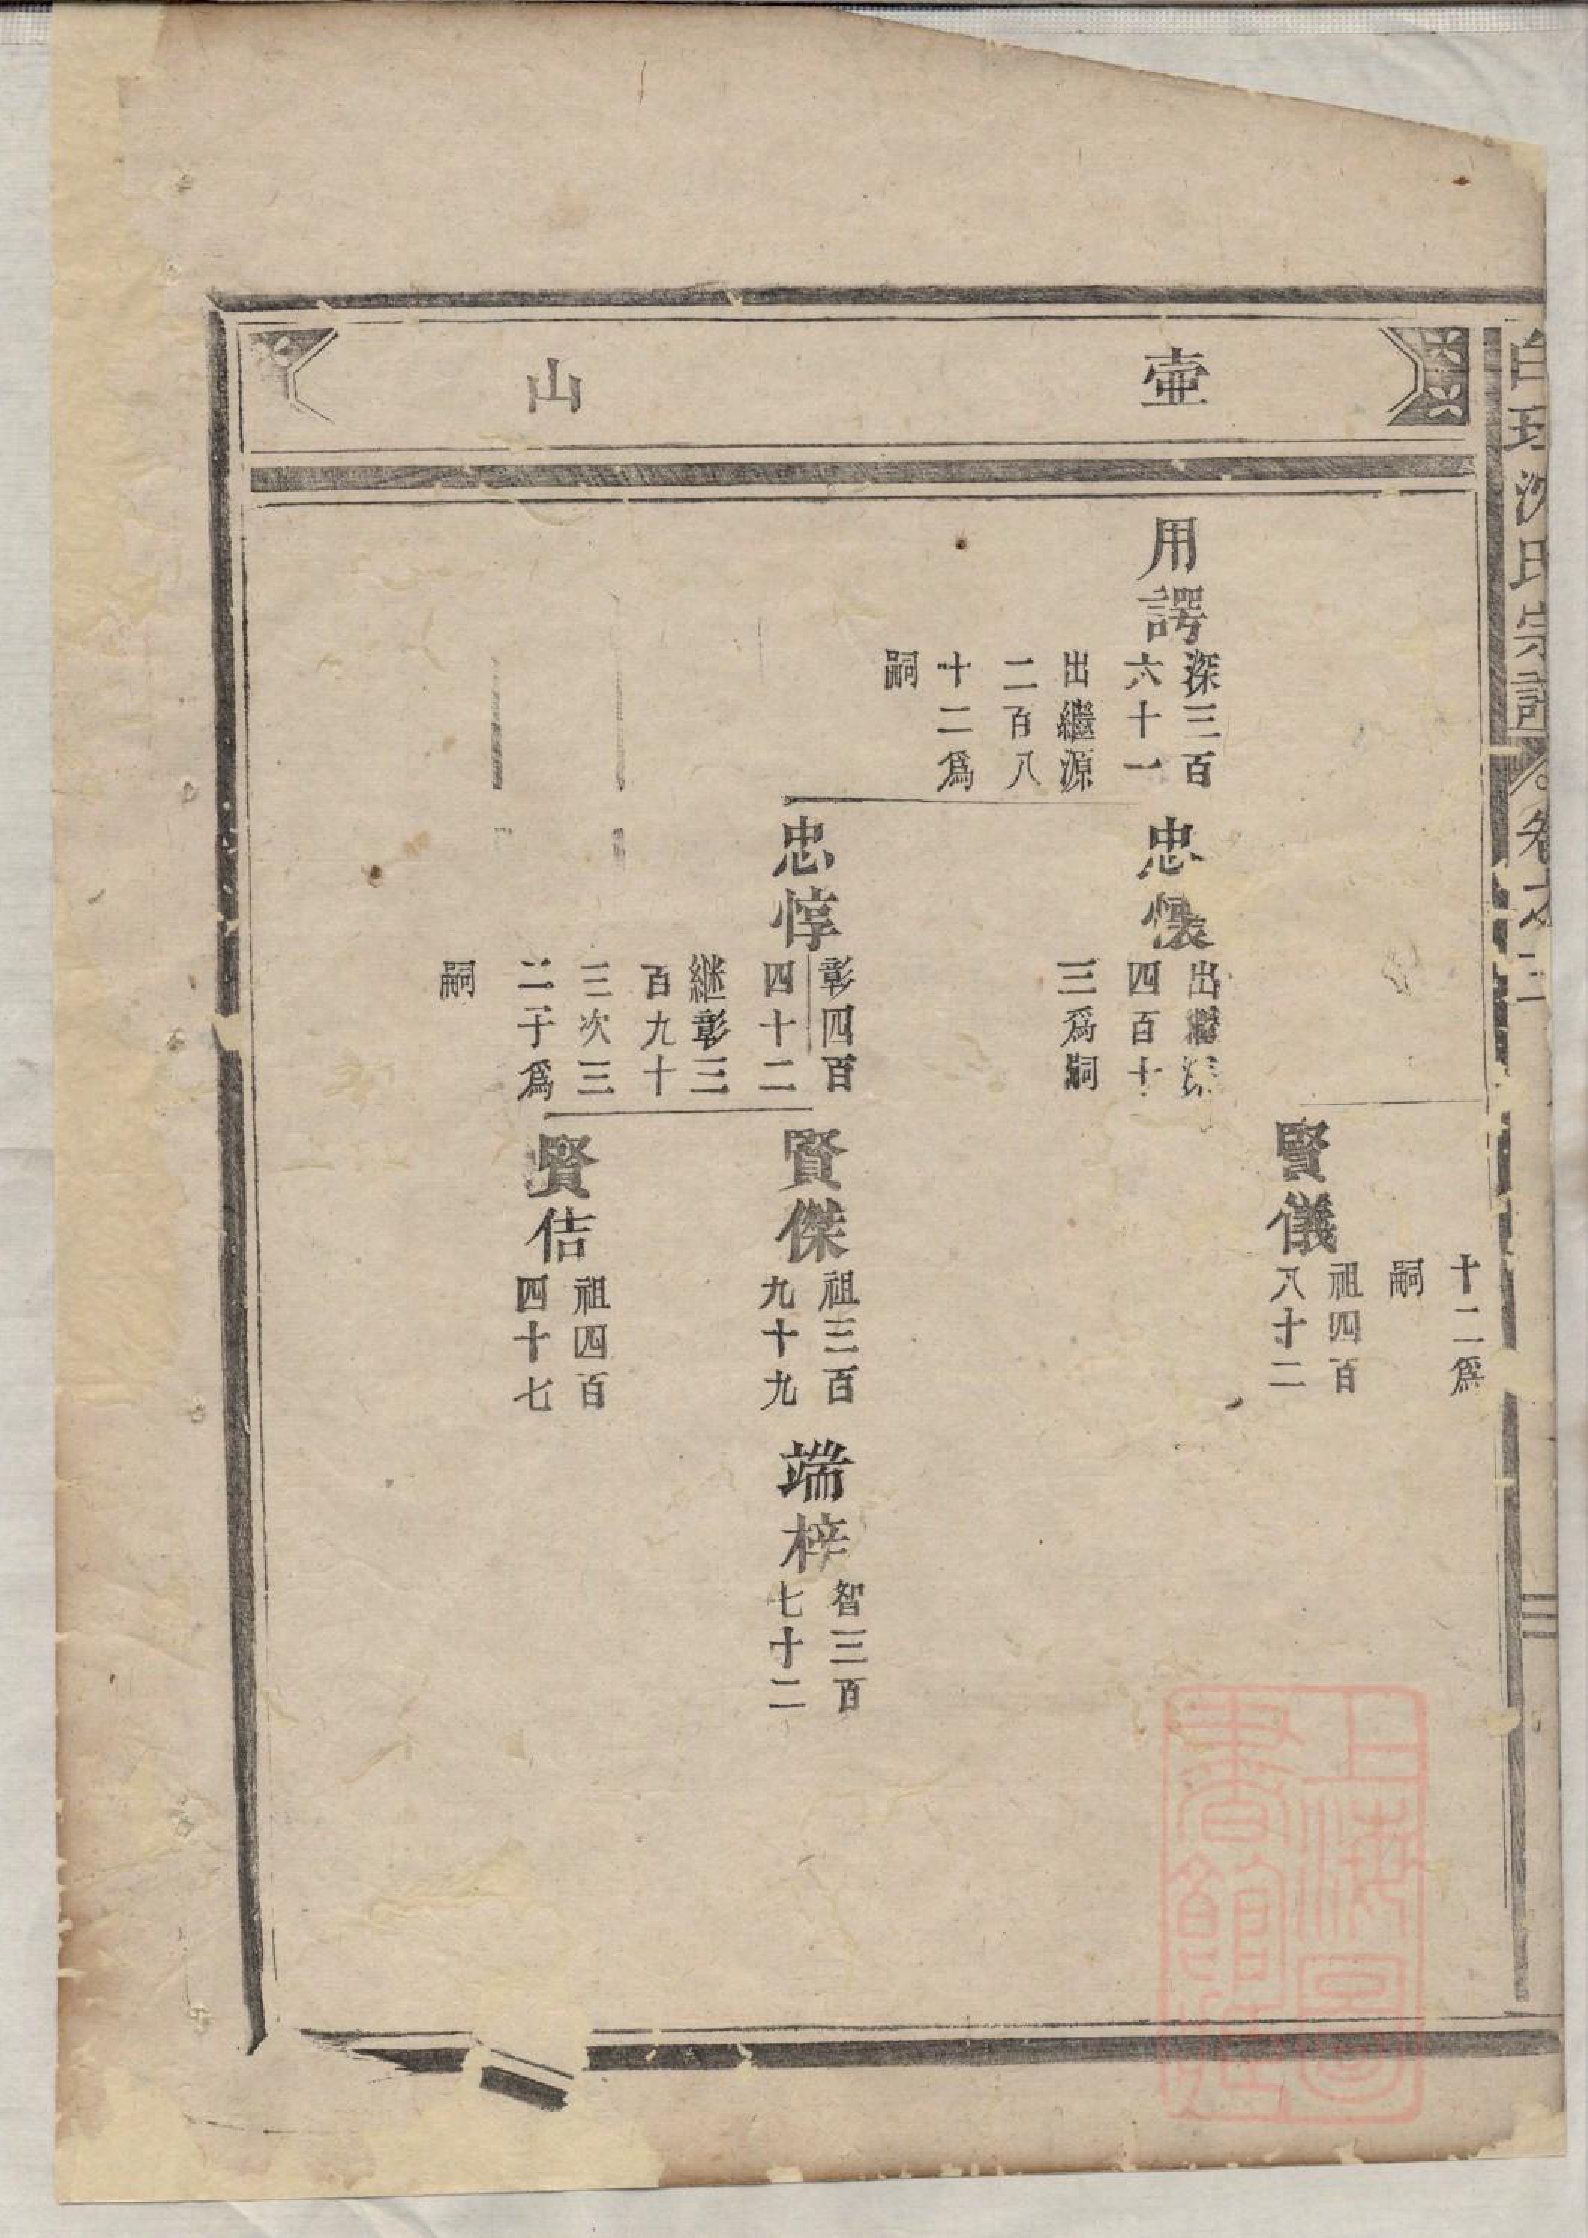 壺山
沈氏宗譜
卷
三
十二爲
嗣
賢儀
祖四百
八十二
用諤
深三百
六十一
出繼源
二百八
十二爲
嗣
忠懷
出繼深
四百十
三爲嗣
忠惇
彰四百
四十二
継彰三
百九十
三次三
二子爲
嗣
賢傑
祖三百
九十九
端梓
智三百
七十二
賢佶
祖四百
四十七
上海圖
書館藏